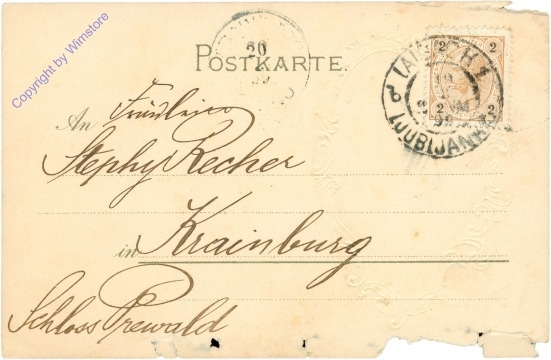 Copyright by Wimstore
POSTKARTE.
20
2 2
2 2
LAIBACH 1
LJUBLJANA
99
An Fräulein
Stephy Recher
in Krainburg
Schloss Prewald